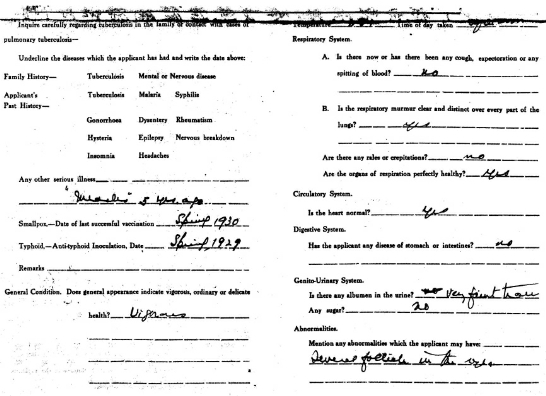 Inquire carefully regarding tuberculosis in the family or contact with cases of
pulmonary tuberculosis—
Underline the diseases which the applicant has had and write the date above:
Family History— Tuberculosis Mental or Nervous disease
Applicant's Past History— Tuberculosis Malaria Syphilis
Gonorrhoea Dysentery Rheumatism
Hysteria Epilepsy Nervous breakdown
Insomnia Headaches
Any other serious illness
"Measles" 5 yrs. ago
Smallpox.—Date of last successful vaccination Spring 1930
Typhoid.—Anti-typhoid Inoculation, Date Spring 1929
Remarks
General Condition. Does general appearance indicate vigorous, ordinary or delicate
health? Vigorous
Time of day taken
Respiratory System.
A. Is there now or has there been any cough, expectoration or any
spitting of blood? no
B. Is the respiratory murmur clear and distinct over every part of the
lungs? yes
Are there any rales or crepitations? no
Are the organs of respiration perfectly healthy? yes
Circulatory System.
Is the heart normal? yes
Digestive System.
Has the applicant any disease of stomach or intestines? no
Genito-Urinary System.
Is there any albumen in the urine? no Very faint trace
Any sugar? no
Abnormalities.
Mention any abnormalities which the applicant may have:
Several follicles in the eyes